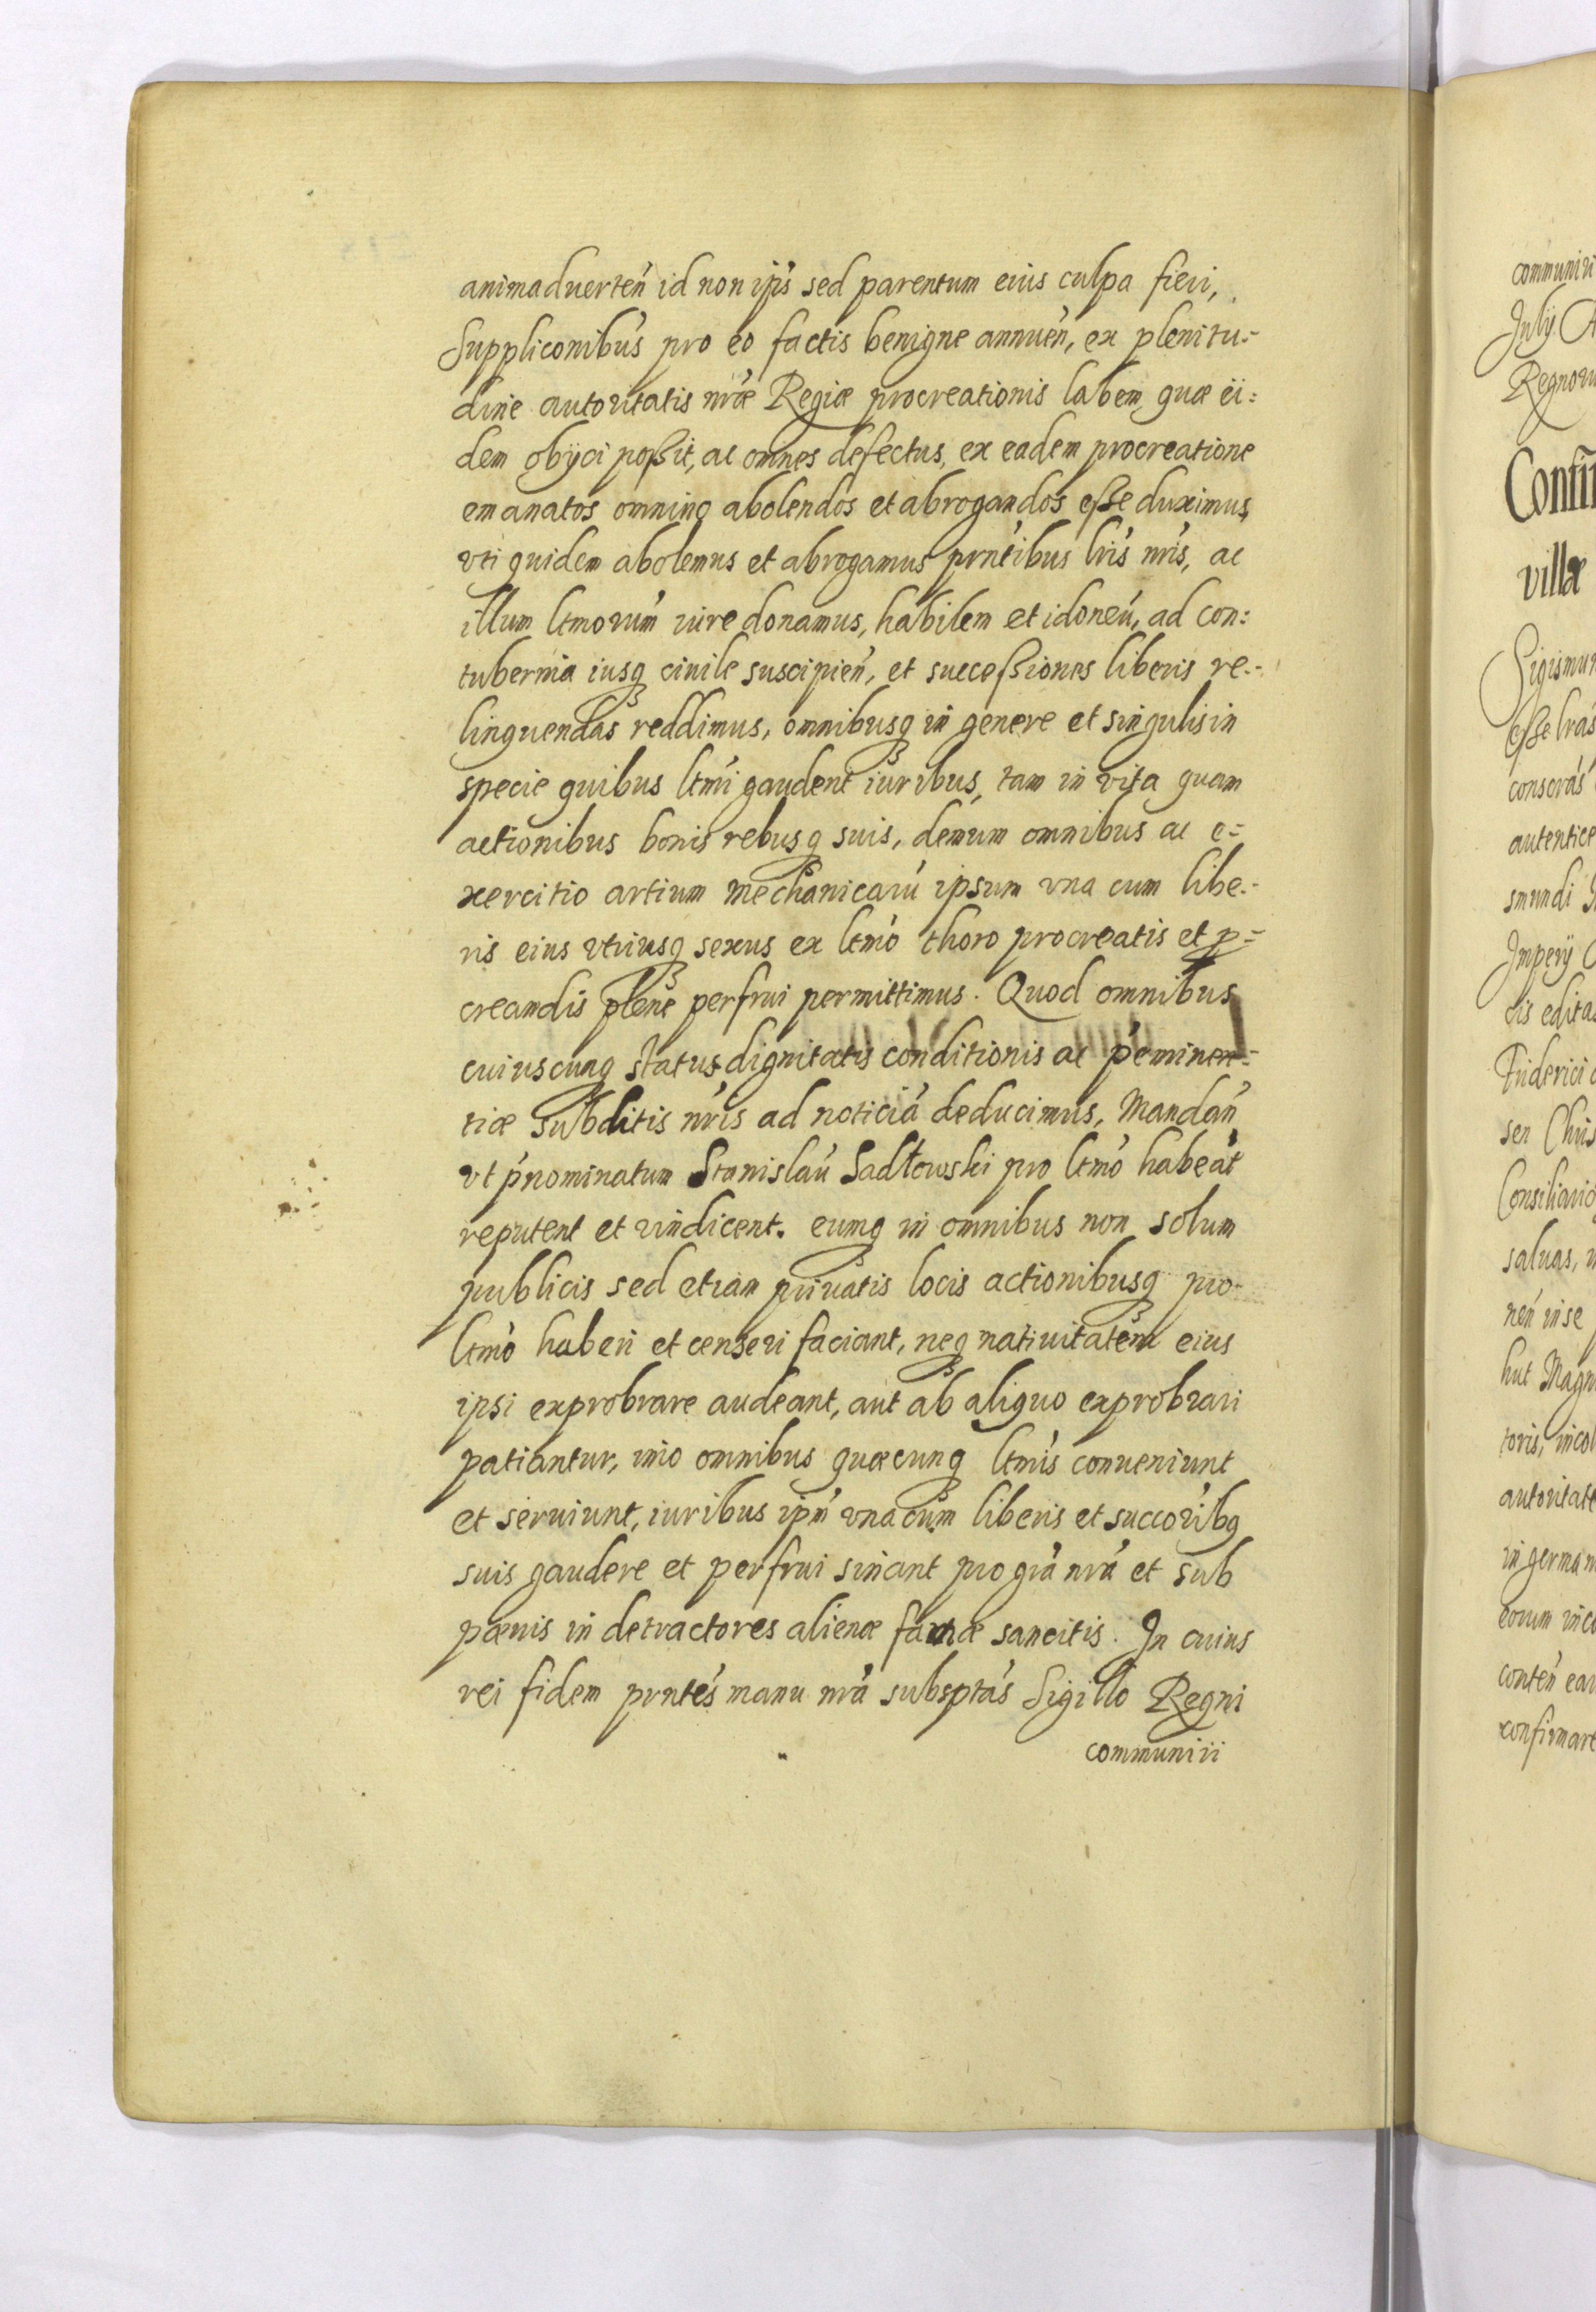 animaduerteń id non ip̃s sed parentum eius culpa fieri,
Suppliconibús pro eo factis benigne annueń, ex plenitu-
dine autoritatis nr̃æ Regiæ procreationis labem quæ ei:
dem obijci poßit, ac omnes defectus, ex eadem procreatione
emanatos omnino abolendos et abrogandos eße duximus,
vti quidem abolemus et abrogamus prńtibus lris nris, ac
illum ltmorum̃ iure donamus, habilem et idoneũ, ad con:
tubernia iusq́ ciuile suscipień, et succeßiones liberis re-
linquendas reddimus, omnibusq́ in genere et singulis in
specie quibus ltmi gaudent iuribus, tam in vita quam
actionibus bonis rebusq́ suis, demum omnibus ac e-
xercitio artium mechanicarũ ipsum vna cum libe-
ris eius vtriusq́ sexus ex ltmo thoro procreatis et p-
creandis plene perfrui permittimus. Quod omnibus
cuiuscunq́ status dignitatis conditionis ac p̃eminen-
tiæ subditis nris ad noticiã deducimus, Mandań
vt p̃nominatum Stanislaũ Sadłowski pro ltmo habeãt
reputent et vindicent. eumq́ in omnibus non solum
publicis sed etiam priuatis locis actionibusq́ pro
ltmo haberi et censeri faciant, neq́ natiuitatem eius
ipsi exprobrare audeant, aut ab aliquo exprobrari
patiantur, imo omnibus quæcunq́ ltmis conueniunt
et seruiunt, iuribus ipm̃ vna cum liberis et succoribq
suis gaudere et perfrui sinant pro grã nrã et sub
pænis in detractores alienæ famæ sancitis. In cuius
rei fidem prntes manu nrã subsptas Sigillo Regni
communiri
communiri
July A
Regnoru
Confir
villæ
Sigismun
eße lrãs
autentice
smundi
Imperij
cis editas
Friderici
seu Chris
Consiliario
saluas,
neń in se
hut Magn
toris, incol
autoritate
in german
eorum inco
conteń ear
confirmare